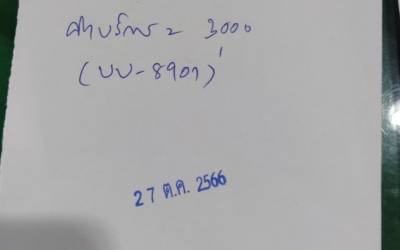 ค่าบริการ = 3000
(บบ-8901)
27 ต.ค. 2566